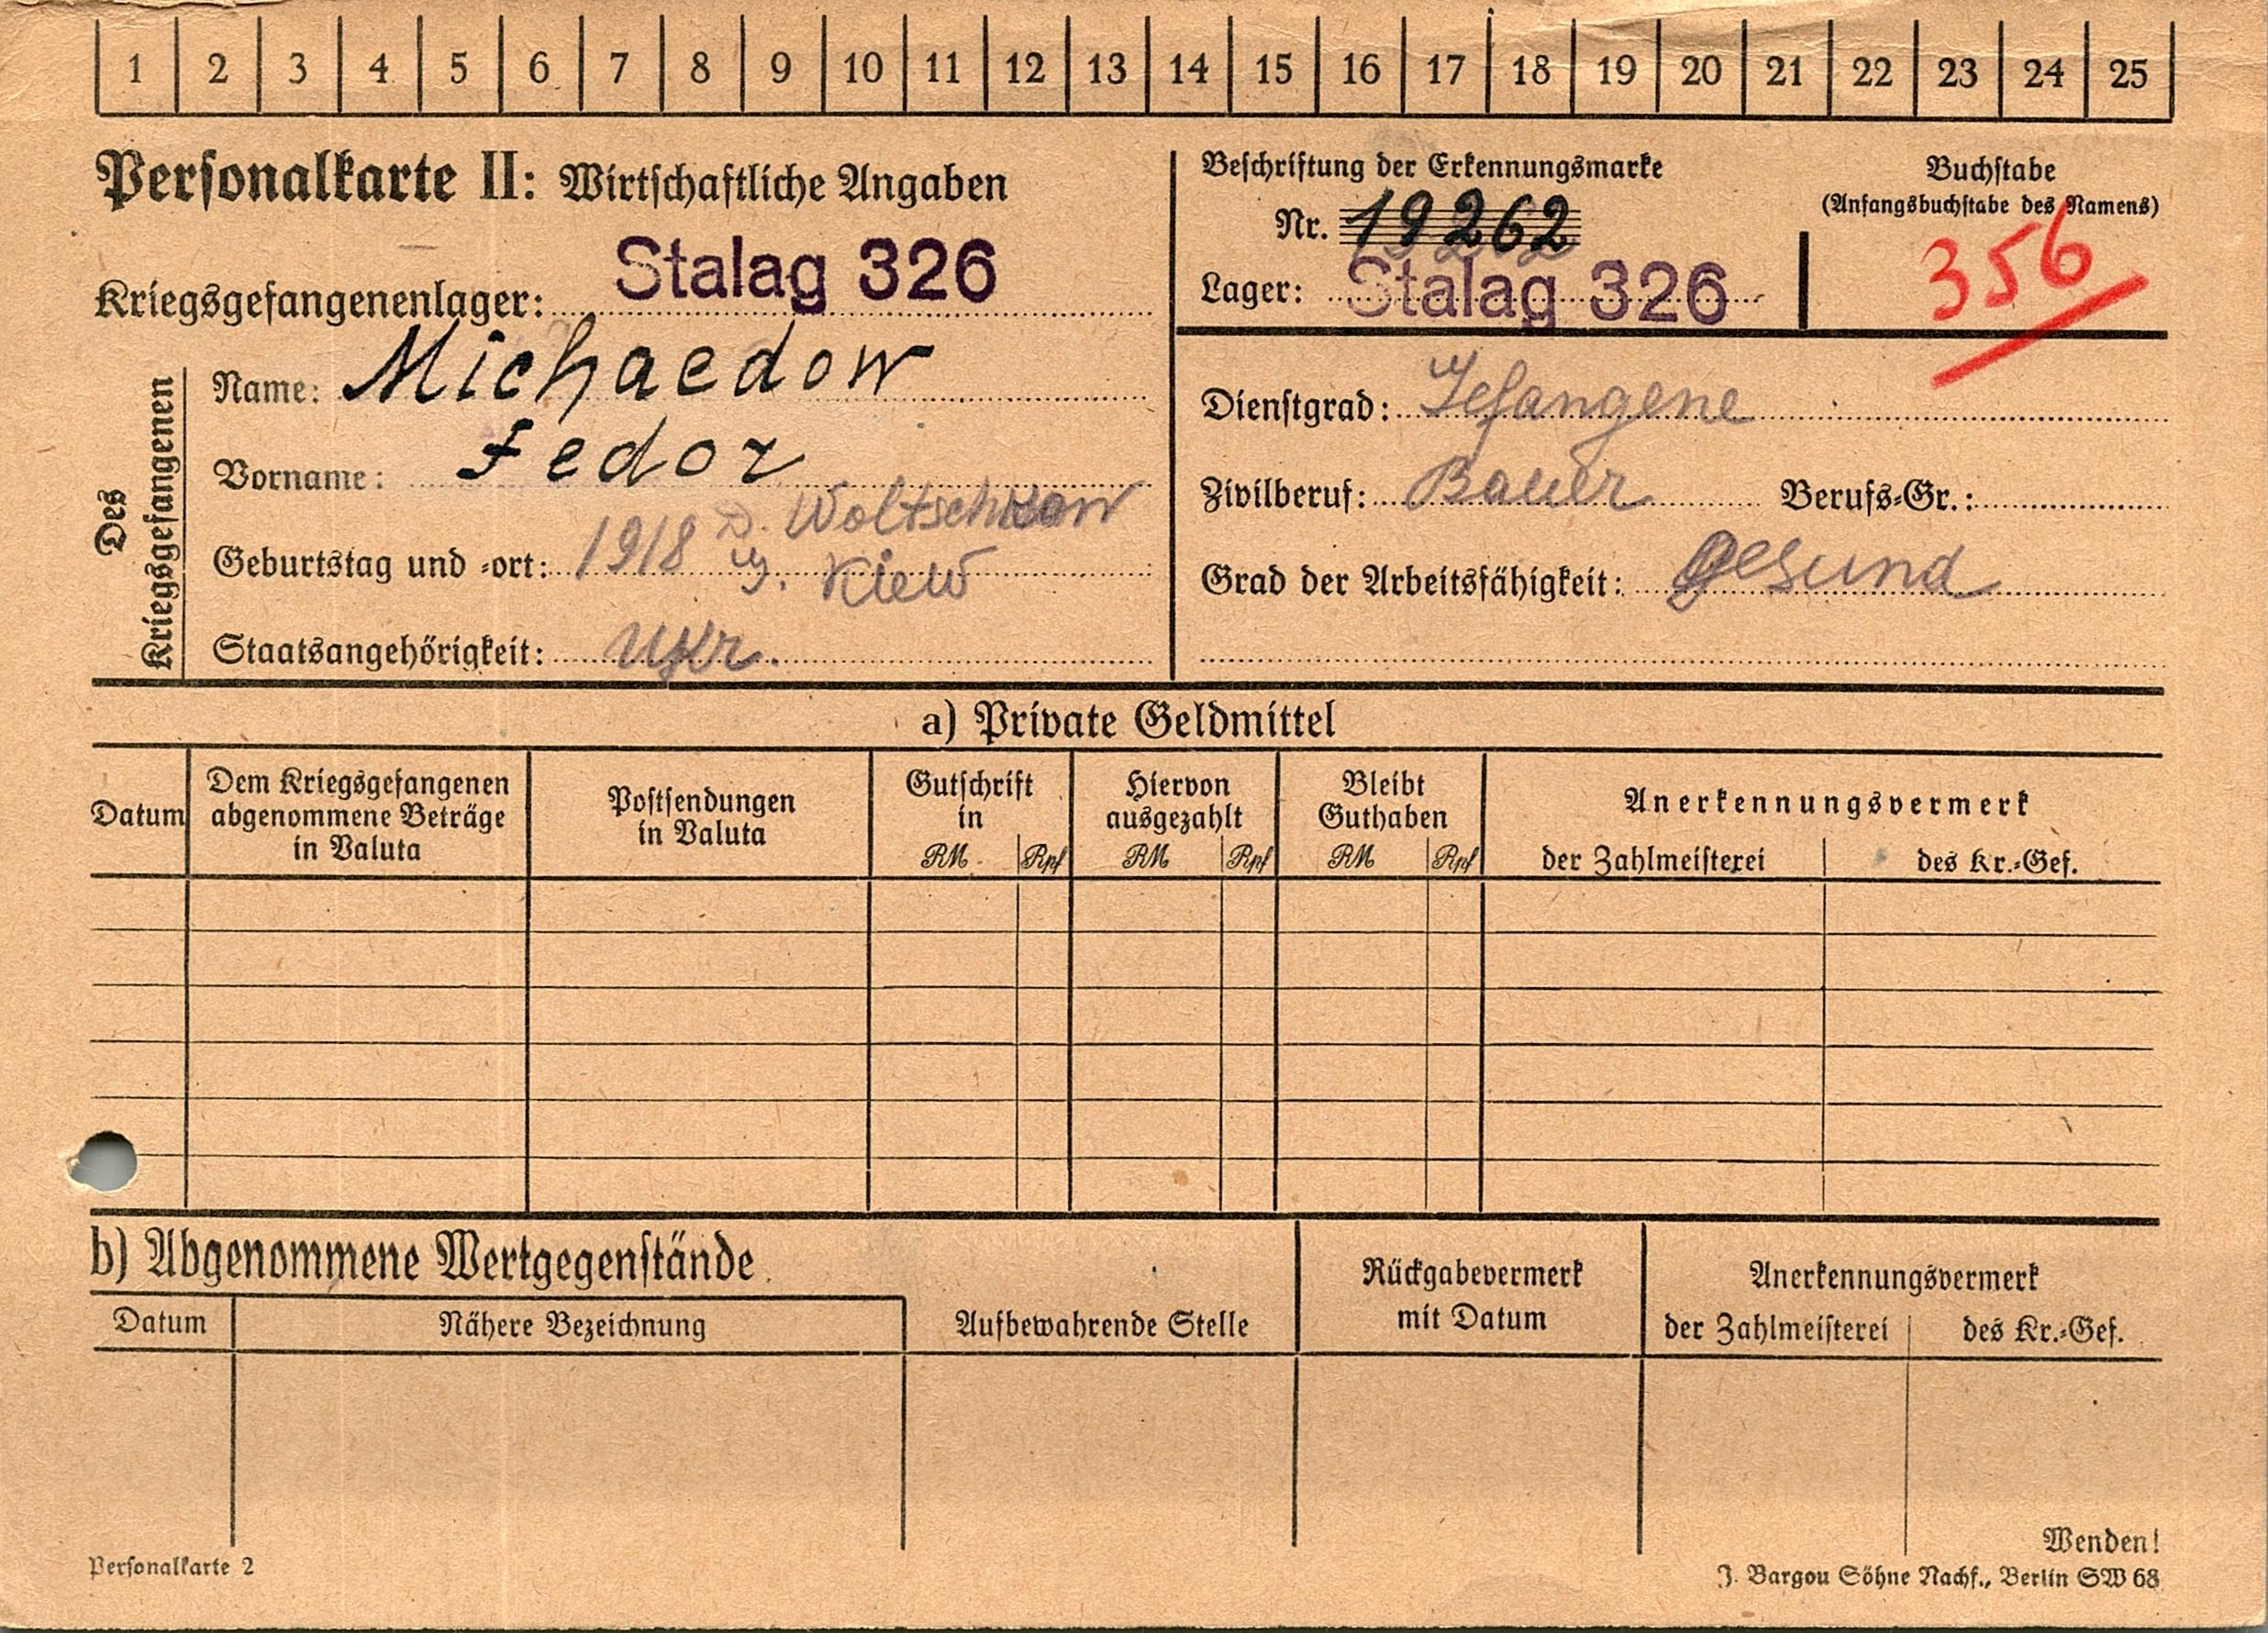 1 2 3 4 5 6 7 8 9 10 11 12 13 14 15 16 17 18 19 20 21 22 23 24 25
Personalkarte II: Wirtschaftliche Angaben
Kriegsgefangenenlager: Stalag 326
Beschriftung der Erkennungsmarke
Nr. 19262
Lager: Stalag 326
Buchstabe
(Anfangsbuchstabe des Namens)
356
Des
Kriegsgefangenen
Name: Michaedow
Vorname: Fedor
Geburtstag und -ort: 1918 D. Woltschkow
g. Kiew
Staatsangehörigkeit: Ukr.
Dienstgrad: Gefangene
Zivilberuf: Bauer Berufs-Gr.:
Grad der Arbeitsfähigkeit: gesund
a) Private Geldmittel
Datum
Dem Kriegsgefangenen
abgenommene Beträge
in Valuta
Postsendungen
in Valuta
Gutschrift
in
RM Rpf
Hiervon
ausgezahlt
RM Rpf
Bleibt
Guthaben
RM Rpf
Anerkennungsvermerk
der Zahlmeisterei des Kr.-Gef.
b) Abgenommene Wertgegenstände
Datum Nähere Bezeichnung
Aufbewahrende Stelle
Rückgabevermerk
mit Datum
Anerkennungsvermerk
der Zahlmeisterei des Kr.-Gef.
Wenden!
Personalkarte 2
J. Bargou Söhne Nachf., Berlin SW 68